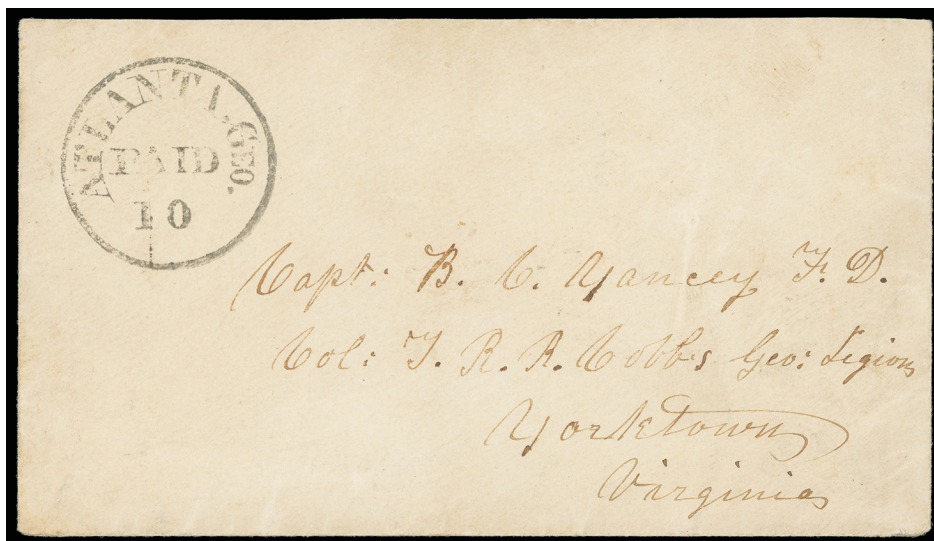 ATLANTA, GEO.
PAID
10
Capt: B. C. Yancey F. D.
Col: T. R. R. Cobbs Geo: Legion
Yorktown
Virginia